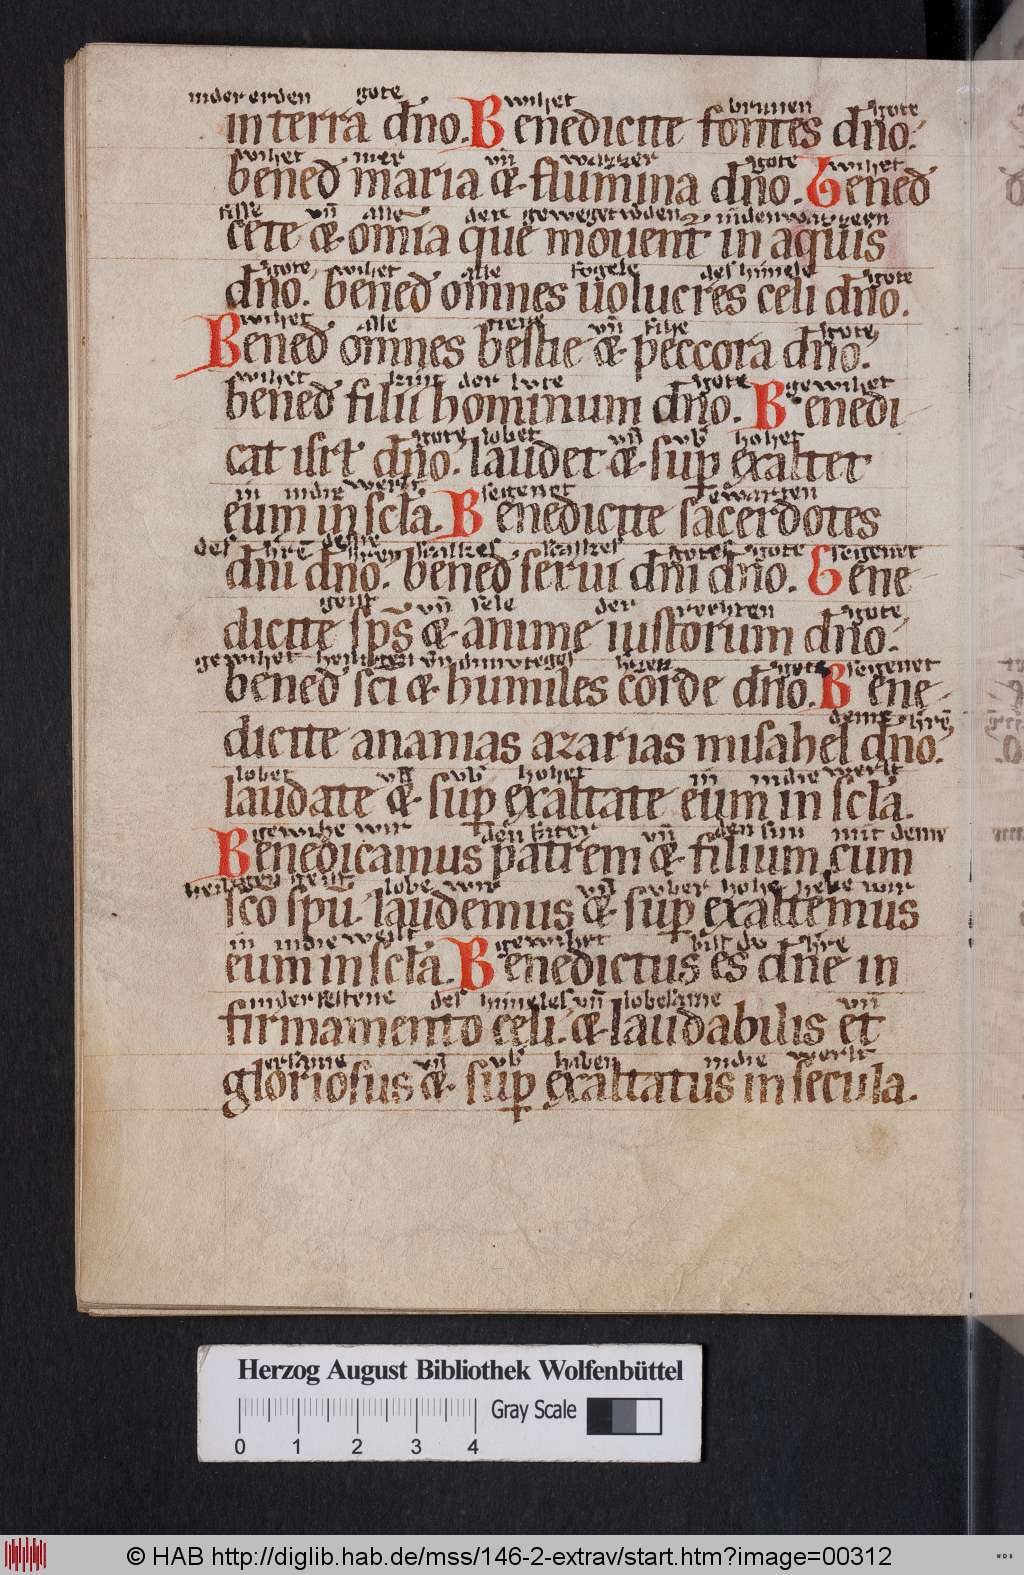 inder erden gote wihet brunen gote
in terra dno. Benedicite fontes dno.
wihet mer vn wazzer gote wihet
bened maria & flumina dno. Bened
fisse vn alle
cete & omia que mouent in aquis
gote wihet alle fogele des himele gote
dno. bened omnes uolucres celi dno.
wihet alle tiere vn fihe gote
Bened omnes bestie & peccora dno.
wihet kint der lvte gote gewihet
bened filii hominum dno. Benedi
gote lobet vn vb hohet
cat isrl dno. laudet & sup exaltet
in indie werlt segenet ewarten
eum in scla. Benedicite sacerdotes
des hren scalkes gotes gote segenet
dni dno. bened serui dni dno. Bene
geist vn sele der rechten gote
dicite sps & anime iustorum dno.
gewihet heiligen vn gote segenet
bened sci & humiles corde dno. Bene
deme hren
dicite ananias azarias misahel dno.
lobet vn vb hohet in indie werlt
laudate & sup exaltate eum in scla.
gewihe wir den fater vn den sun mit deme
Benedicamus patrem & filium cum
heiligen geist lobe wir vn vber hohe hebe wir
sco spu. laudemus & sup exaltemus
in indie werlt gewihet bist du hre
eum in scla. Benedictus es dne in
inder festene des himeles vn lobesame vn
firmamento celi. & laudabilis et
ersame vn vb haben indie werlt
gloriosus & sup exaltatus in secula.
Herzog August Bibliothek Wolfenbüttel
Gray Scale
0 1 2 3 4
© HAB http://diglib.hab.de/mss/146-2-extrav/start.htm?image=00312